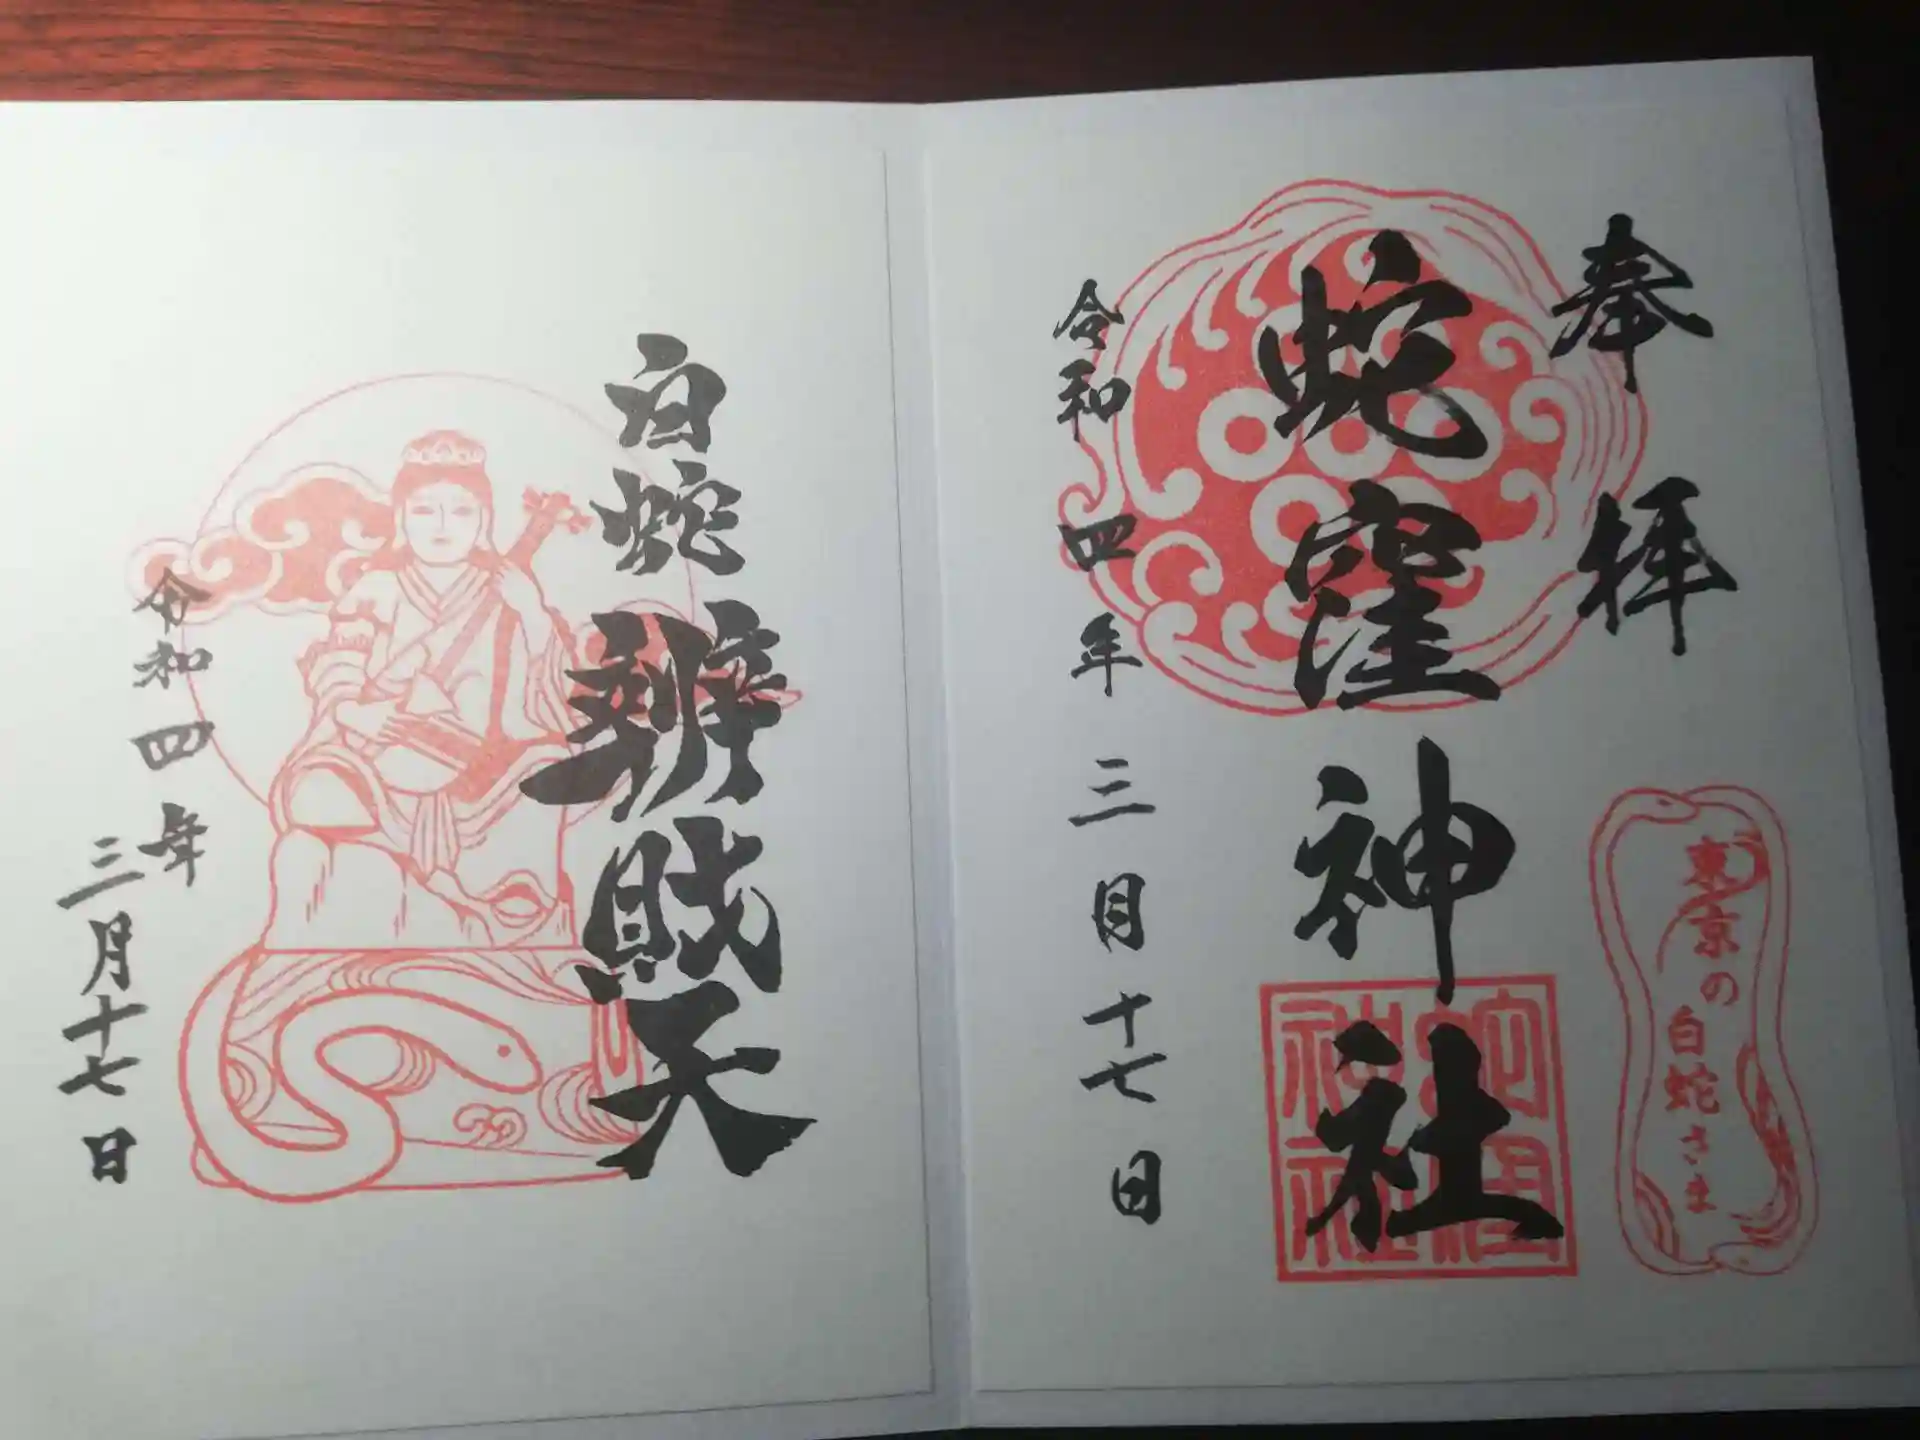 奉拝
東京の白蛇さま
蛇窪神社
令和四年三月十七日
白蛇辨財天
令和四年
三月十七日